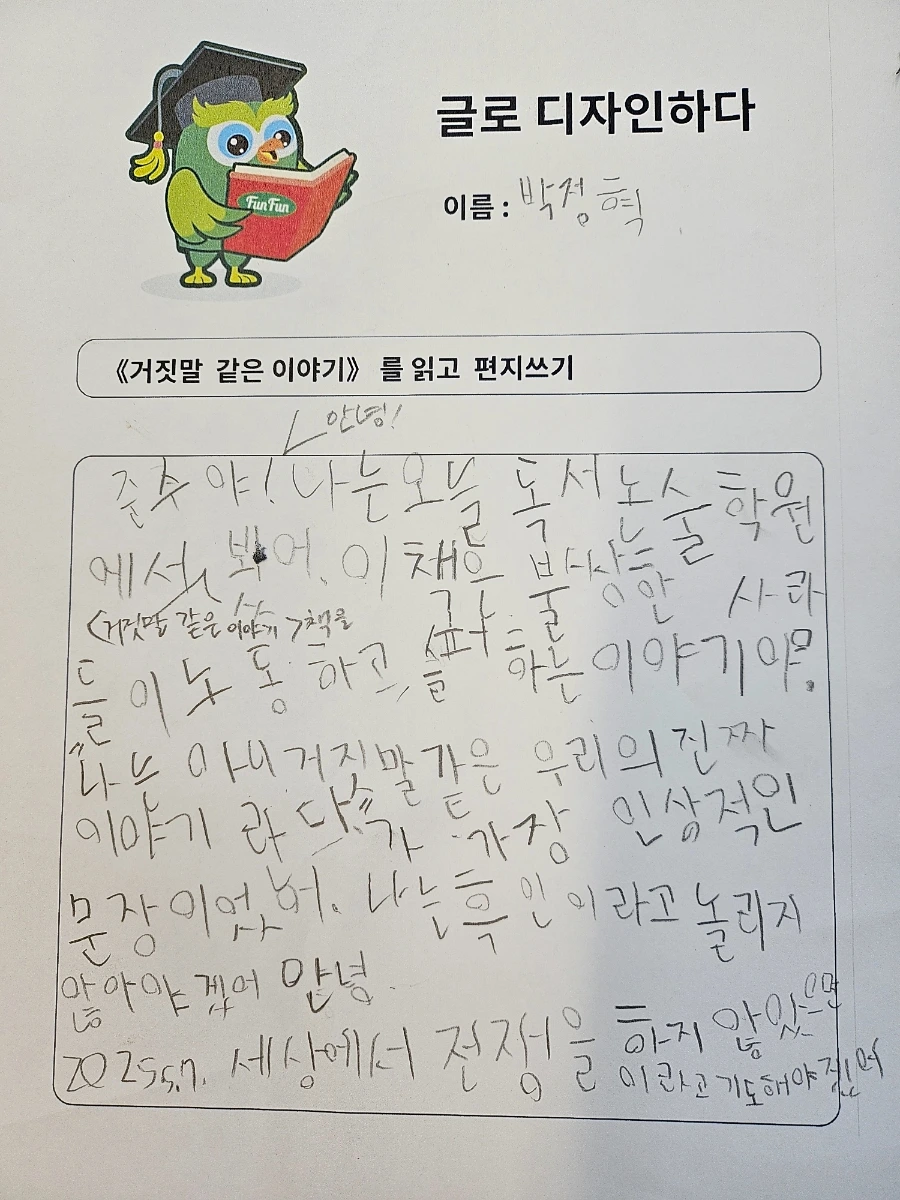 글로 디자인하다
FunFun
이름 : 박정혁
《거짓말 같은 이야기》 를 읽고 편지쓰기
안녕!
준수야! 나는 오늘 독서 논술 학원
에서 봤어. 이 책은 불쌍한 사람
<거짓말 같은 이야기>책을
들이 노동하고, 하는 이야기야.
"나는 아니 거짓말 같은 우리의 진짜
이야기 라 가 가장 인상적인
문장이었어. 나는 흑인이라고 놀리지
않아야겠어 안녕.
2025.5.7. 세상에서 전쟁을 하지 않았으면
이라고 기도해야겠어